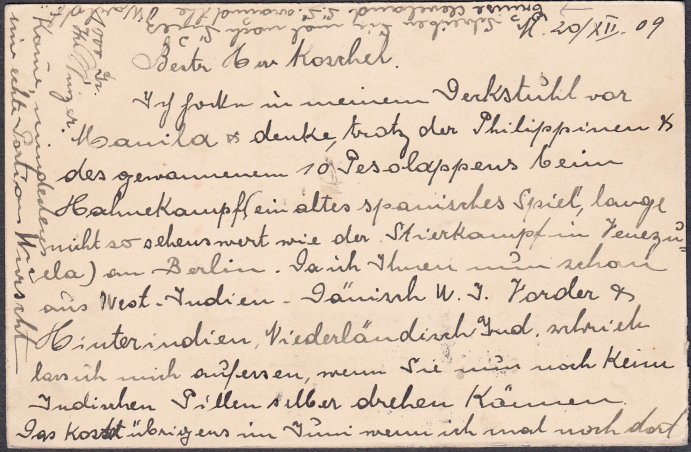 M. 20/XII. 09
Bester Herr Koschel.
Ich hocke in meinem Deckstuhl vor
Manila & denke, trotz der Philippinen &
des gewonnenen 10 Pesolappens beim
Hahnekampf (ein altes spanisches Spiel, lange
nicht so sehenswert wie der Stierkampf in Venezu-
ela) an Berlin. Da ich Ihnen nun schon
aus West-Indien - Dänisch W. I. Vorder &
Hinterindien, Niederländisch Ind. schrieb
lass ich mich auffessen, wenn Sie nun noch keine
Indischen Pillen selber drehen können.
Das kostet übrigens im Juni wenn ich mal noch dort
eine echte Portion Wurscht
Kaue, mindestens
Ihr
Schreiben Sie mal nach S. S.
Cleveland around the World
cruise